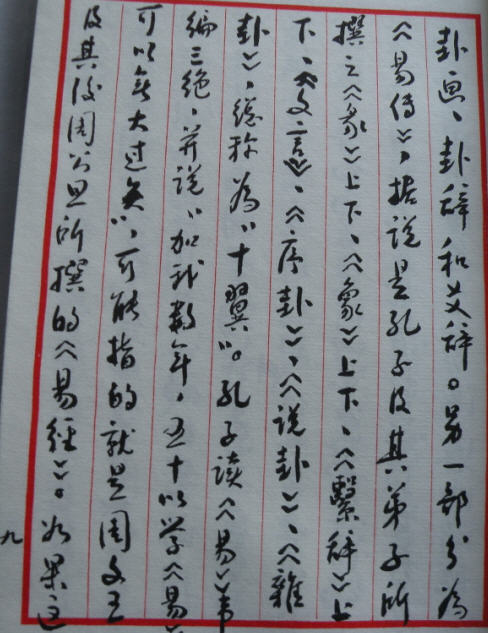 卦画、卦辞和爻辞。另一部分为
《易传》，据说是孔子及其弟子所
撰之《彖》上下、《象》上下、《繫辞》上
下、《文言》、《序卦》、《说卦》、《雜
卦》，总称为“十翼”。孔子读《易》韦
编三绝，并说“加我数年，五十以学《易》
可以无大过矣”，可能指的就是周文王
及其后周公旦所撰的《易经》。如果这
九